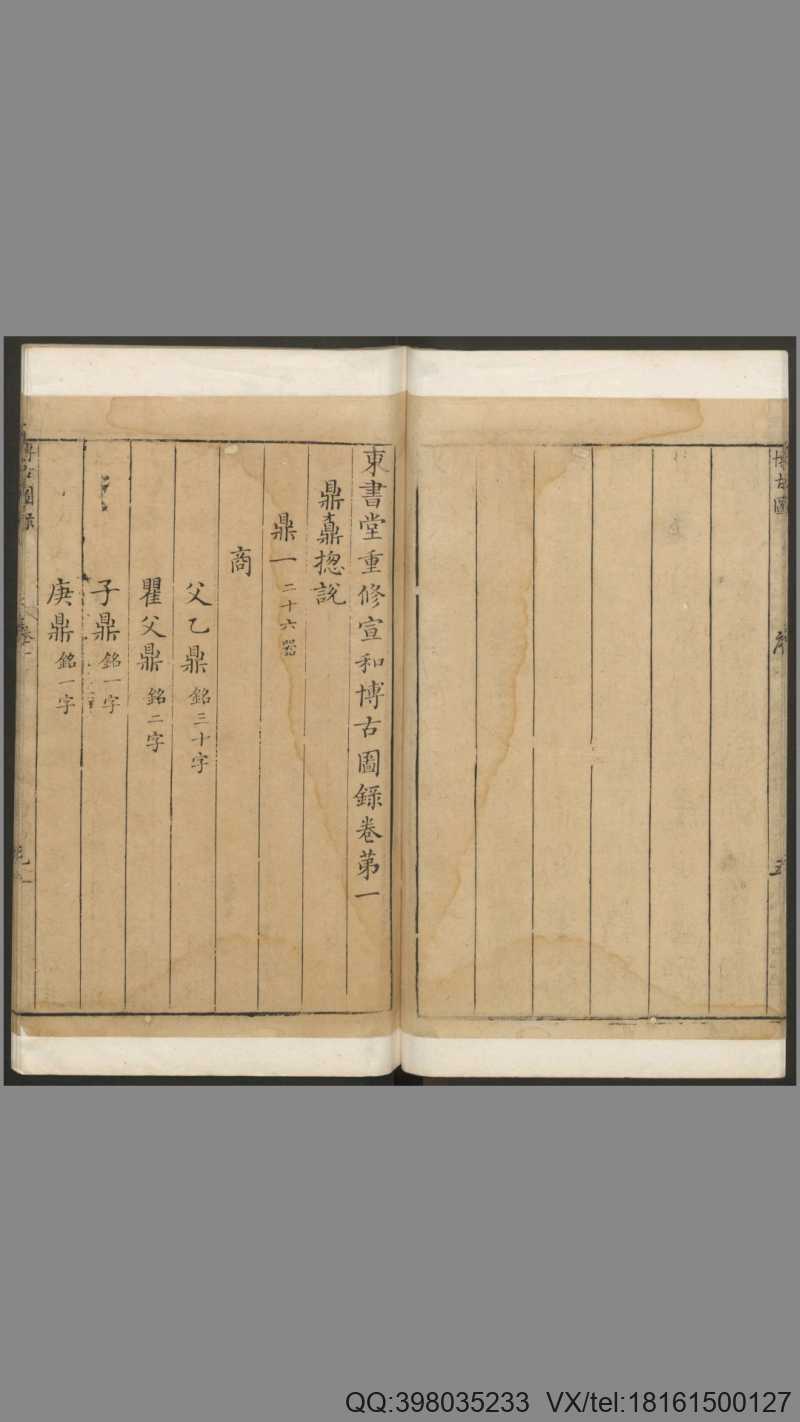 博古圖
東書堂重修宣和博古圖録卷第一
鼎鼒揔說
鼎一二十六器
商
父乙鼎銘三十字
瞿父鼎銘二字
子鼎銘一字
庚鼎銘一字
QQ:398035233 VX/tel:18161500127